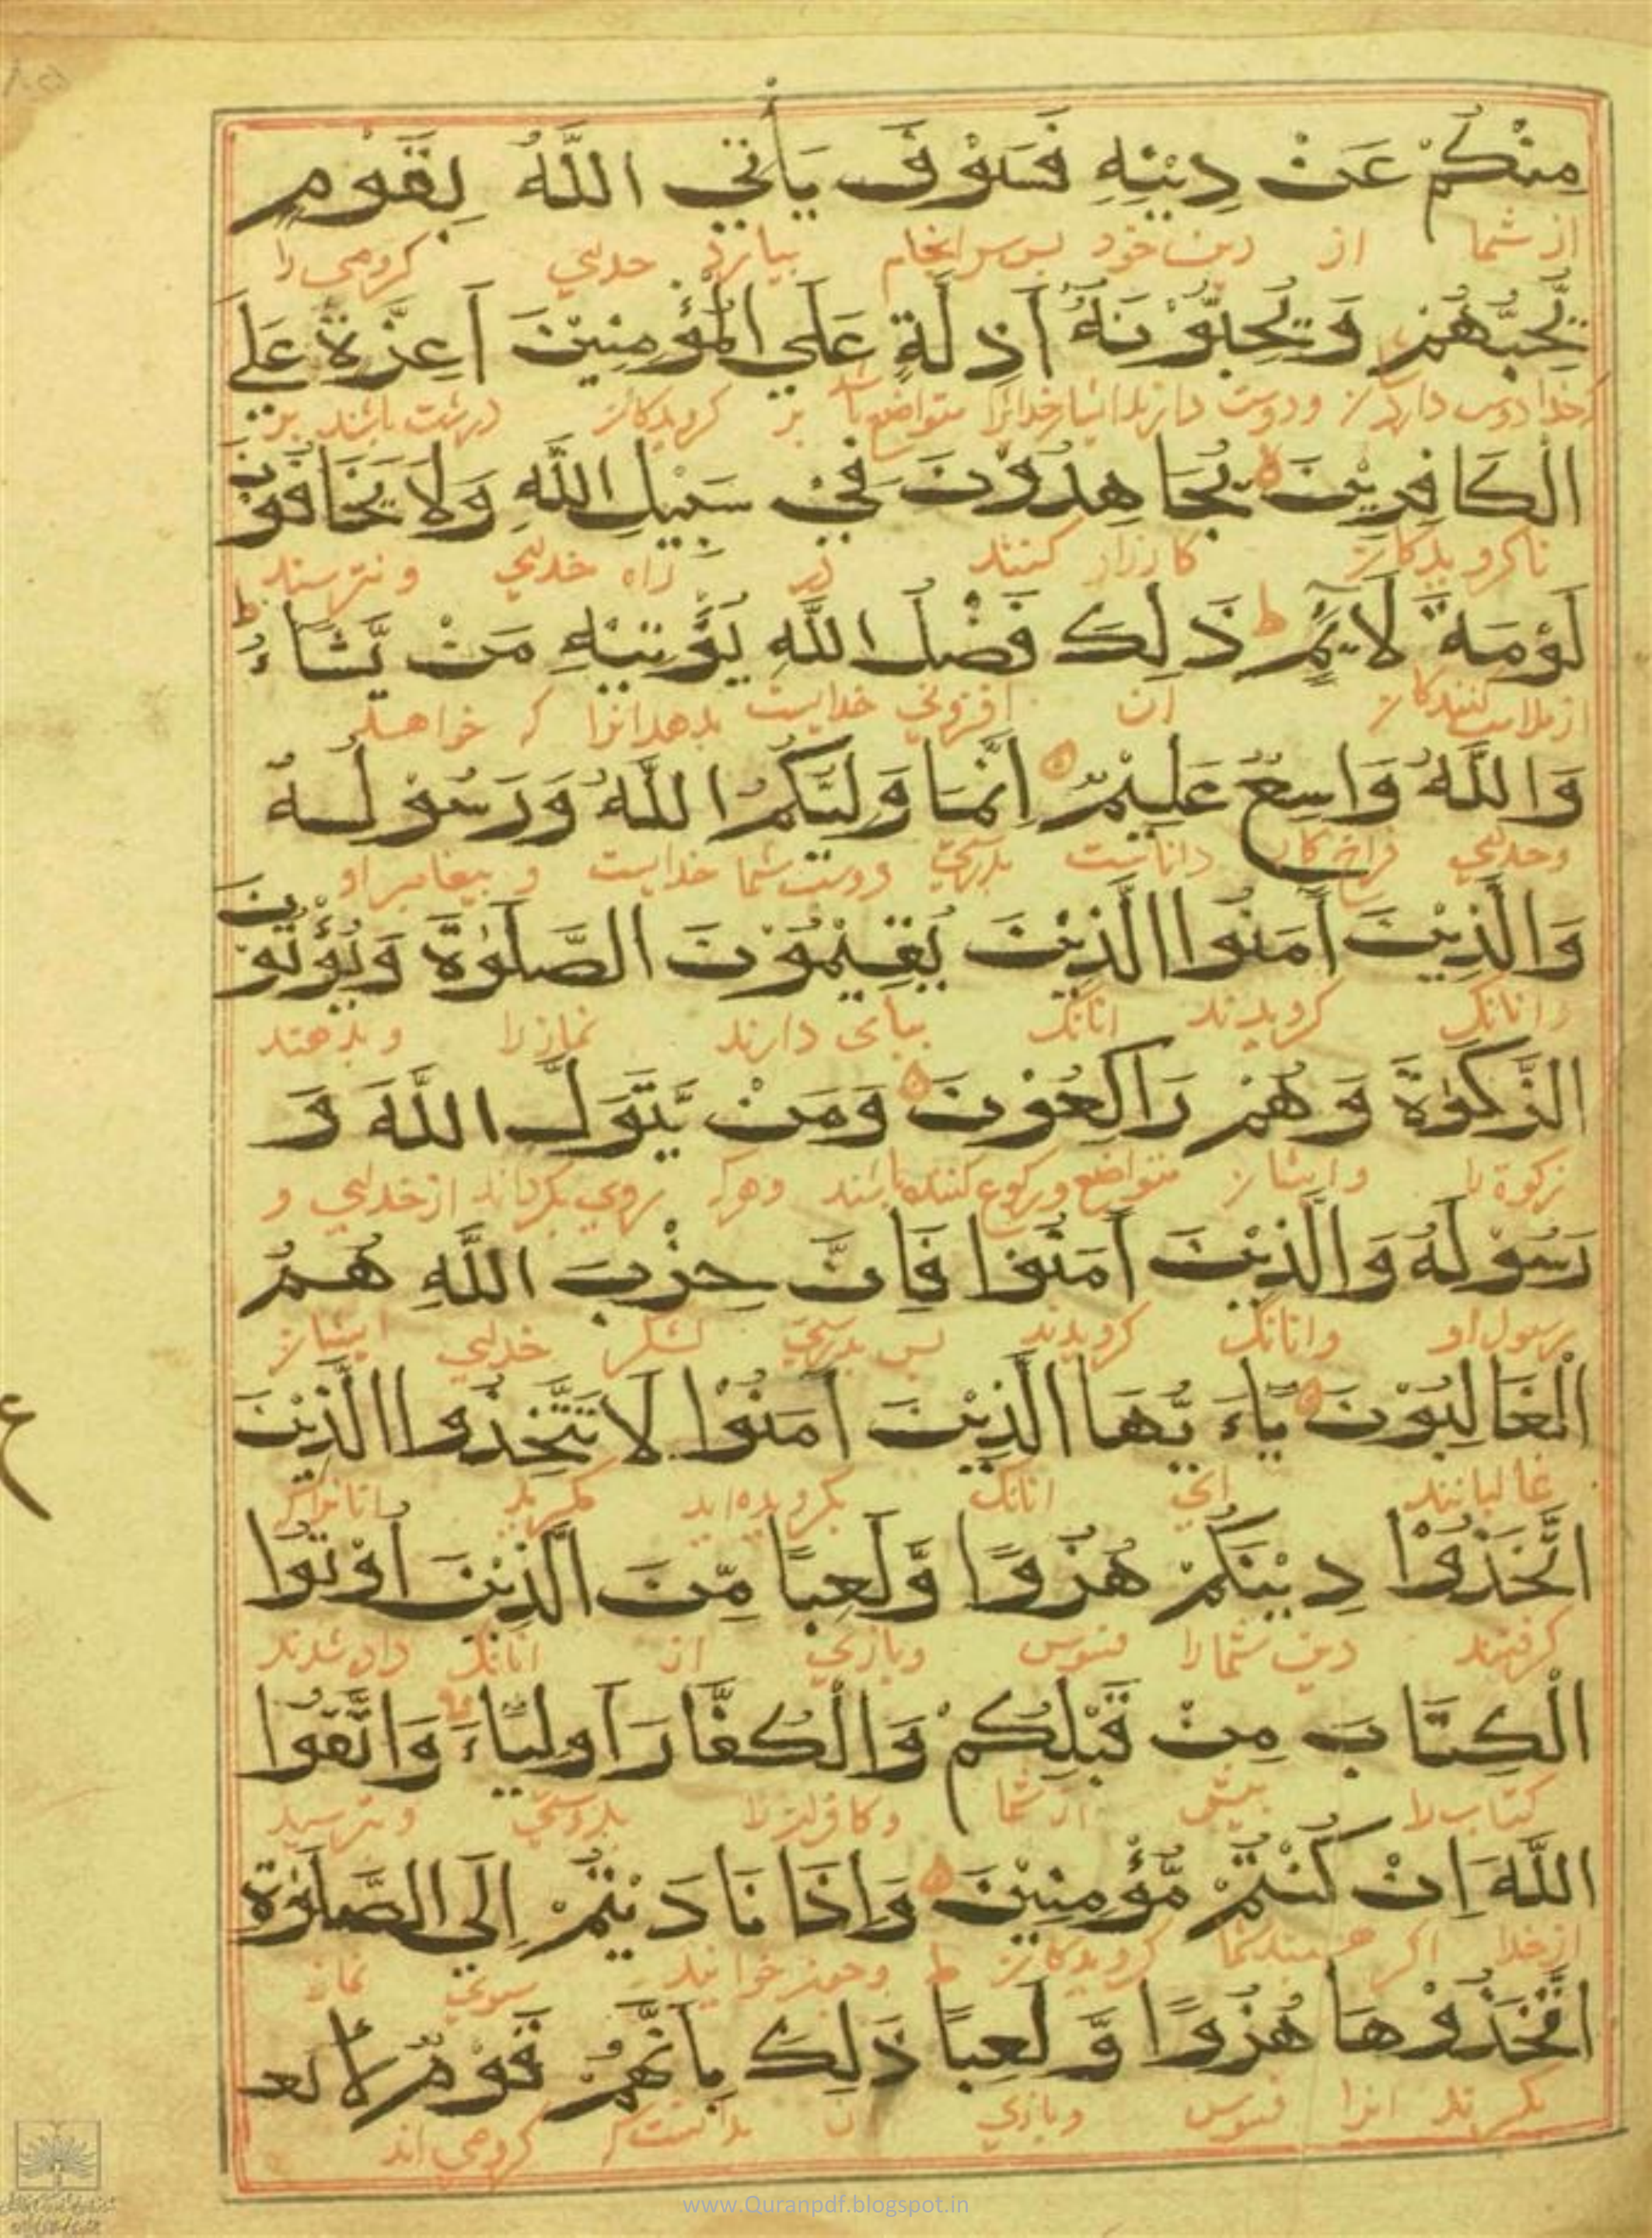 مِنْكُمْ عَنْ دِيْنِهِ فَسَوْفَ يَأْتِي اللَّهُ بِقَوْمٍ
از شما از دین خود پس سرانجام بیارد خدای کروهی را
يُّحِبُّهُمْ وَيُحِبُّوْنَهُ أَذِلَّةٍ عَلَي الْمُؤْمِنِيْنَ أَعِزَّةٍ عَلَي
ودوست دارند ایشان خدایرا متواضع باشند بر کرویدکان درشت باشند بر
الْكَافِرِيْنَ يُجَاهِدُوْنَ فِيْ سَبِيْلِ اللَّهِ وَلَا يَخَافُوْنَ
ناکرویدکان کارزار کنند در راه خدای و نترسند
لَوْمَةَ لَآئِمٍ ط ذَلِكَ فَضْلُ اللَّهِ يُؤْتِيْهِ مَنْ يَّشَاءُ ط
از ملامت کنندکان آن افزونی خدایست بدهد انرا که خواهد
وَاللَّهُ وَاسِعٌ عَلِيْمٌ إِنَّمَا وَلِيُّكُمُ اللَّهُ وَرَسُوْلُهُ
وخدای فراخ کار داناست بدرستی دوست شما خدایست و پیغامبر او
وَالَّذِيْنَ آمَنُوا الَّذِيْنَ يُقِيْمُوْنَ الصَّلَوٰةَ وَيُؤْتُوْنَ
وانانک کرویدند انانک بپای دارند نماز را و بدهند
الزَّكَوٰةَ وَهُمْ رَاكِعُوْنَ وَمَنْ يَّتَوَلَّ اللَّهَ وَ
زکوة را وایشان متواضع ورکوع کننده باشند وهرکه روی بکرداند از خدای و
رَسُوْلَهُ وَالَّذِيْنَ آمَنُوْا فَإِنَّ حِزْبَ اللَّهِ هُمُ
رسول او وانانک کرویدند پس بدرستی لشکر خدای ایشان
الْغَالِبُوْنَ يَاءَيُّهَا الَّذِيْنَ آمَنُوْا لَا تَتَّخِذُوا الَّذِيْنَ
غالبانند ای انانک بکرویده اید مکیرید انانرا که
اتَّخَذُوْا دِيْنَكُمْ هُزُوًا وَّلَعِبًا مِّنَ الَّذِيْنَ أُوْتُوا
کرفتند دین شما را فسوس وبازی از انانک داده شدند
الْكِتَابَ مِنْ قَبْلِكُمْ وَالْكُفَّارَ أَوْلِيَاءَ وَاتَّقُوا
کتاب را پیش از شما وکافرانرا بدوستی وبترسید
اللَّهَ إِنْ كُنْتُمْ مُّؤْمِنِيْنَ وَإِذَا نَادَيْتُمْ إِلَي الصَّلَوٰةِ
از خدا اکر هستید شما کرویدکان ط وچون خوانید سوی نماز
اتَّخَذُوْهَا هُزُوًا وَّلَعِبًا ذَلِكَ بِأَنَّهُمْ قَوْمٌ لَّا يعـ
بکیرند انرا فسوس وبازی بدانست که کروهی اند
ع
www.Quranpdf.blogspot.in